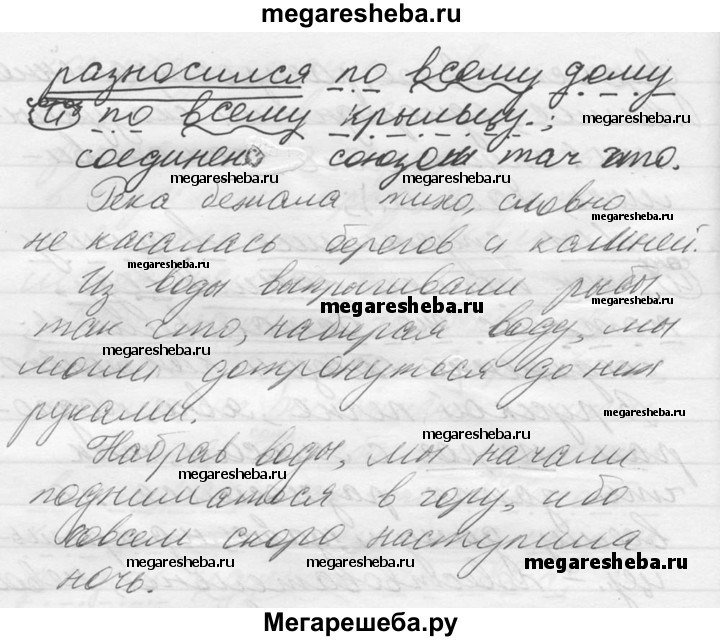 megaresheba.ru
разносился по всему дому
и по всему крыльцу.;
megaresheba.ru
соединено союзом так что.
megaresheba.ru megaresheba.ru
Река бежала тихо, словно
megaresheba.ru
не касалась берегов и камней.
megaresheba.ru
Из воды выпрыгивали рыбы,
megaresheba.ru
megaresheba.ru
так что, набирая воду, мы
megaresheba.ru
могли дотронуться до них
megaresheba.ru
руками.
megaresheba.ru
Набрав воды, мы начали
megaresheba.ru
подниматься в гору, ибо
совсем скоро наступила
megaresheba.ru megaresheba.ru megaresheba.ru
ночь.
Мегарешеба.ру